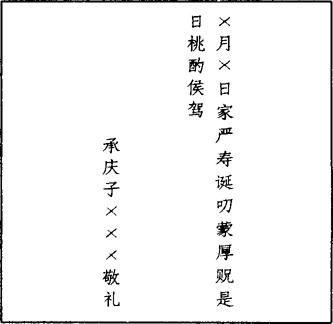 ×月×日家严寿诞叨蒙厚贶是
日桃酌侯驾
承庆子×××敬礼